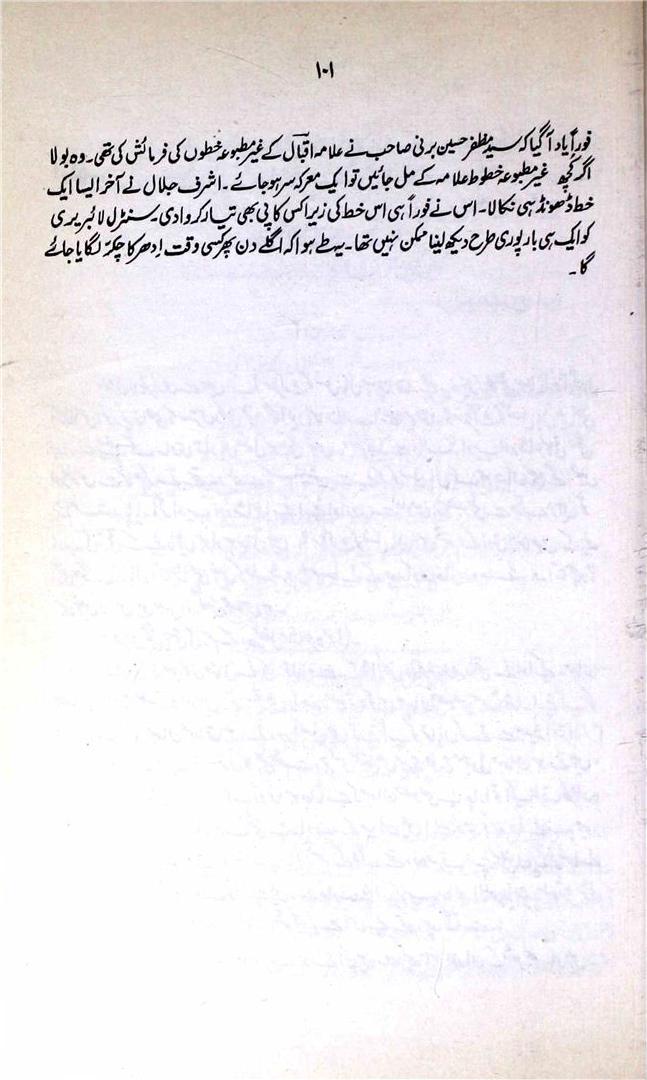 ۱۰۱
فوراً یاد آگیا کہ سید مظفر حسین برنی صاحب نے علامہ اقبالؔ کے غیر مطبوعہ خطوں کی فرمائش کی تھی۔ وہ بولا
اگر کچھ غیر مطبوعہ خطوط علامہ کے مل جائیں تو ایک معرکہ سر ہو جائے۔ اشرف جلال نے آخر ایسا ایک
خط ڈھونڈ ہی نکالا۔ اس نے فوراً ہی اس خط کی زیراکس کاپی بھی تیار کروا دی۔ سنٹرل لائبریری
کو ایک ہی بار پوری طرح دیکھ لینا ممکن نہیں تھا۔ یہ طے ہوا کہ اگلے دن پھر کسی وقت اِدھر کا چکر لگایا جائے
گا۔